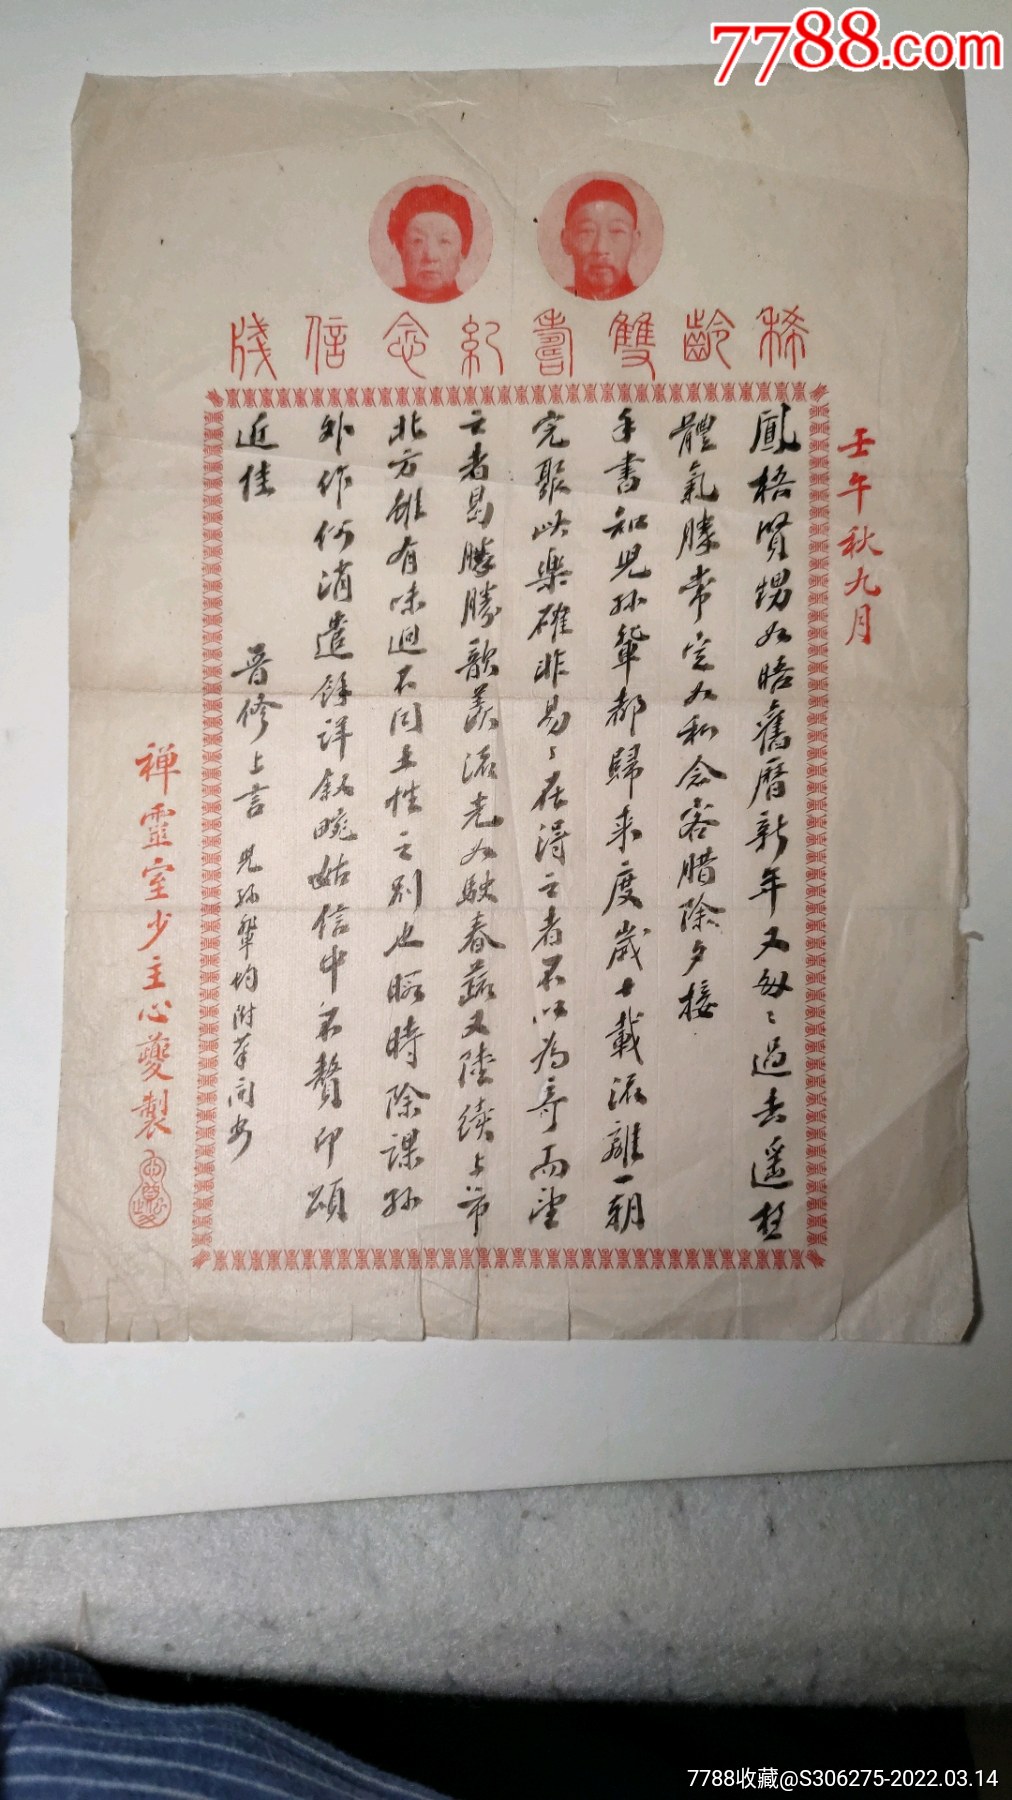 7788.com
稀齡雙壽紀念信牋
壬午秋九月
鳳梧賢甥如晤舊曆新年又匆匆過去遥想
體氣勝常定如私念客腊除夕接
手書知兒孫輩都歸來度歲十載流離一朝
完聚此樂確非易易在得之者不以為奇而望
之者曷勝勝歆羨流光如駛春蔬又陸續上市
北方雖有味迥不同土性之别也暇時除課孫
外作何消遣餘詳銘畹姑信中不贅即頌
近佳
晋修上言 兒孫輩均附筆问安
禅靈室少主心夔製
7788收藏@S306275-2022.03.14